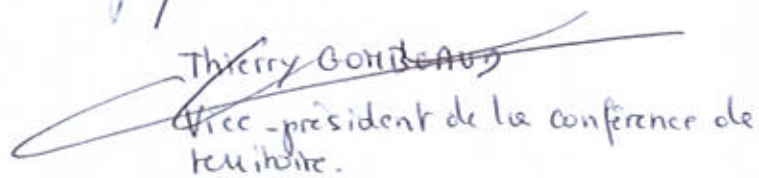 Thierry GOMBEAUD
Vice-président de la conférence de
territoire.